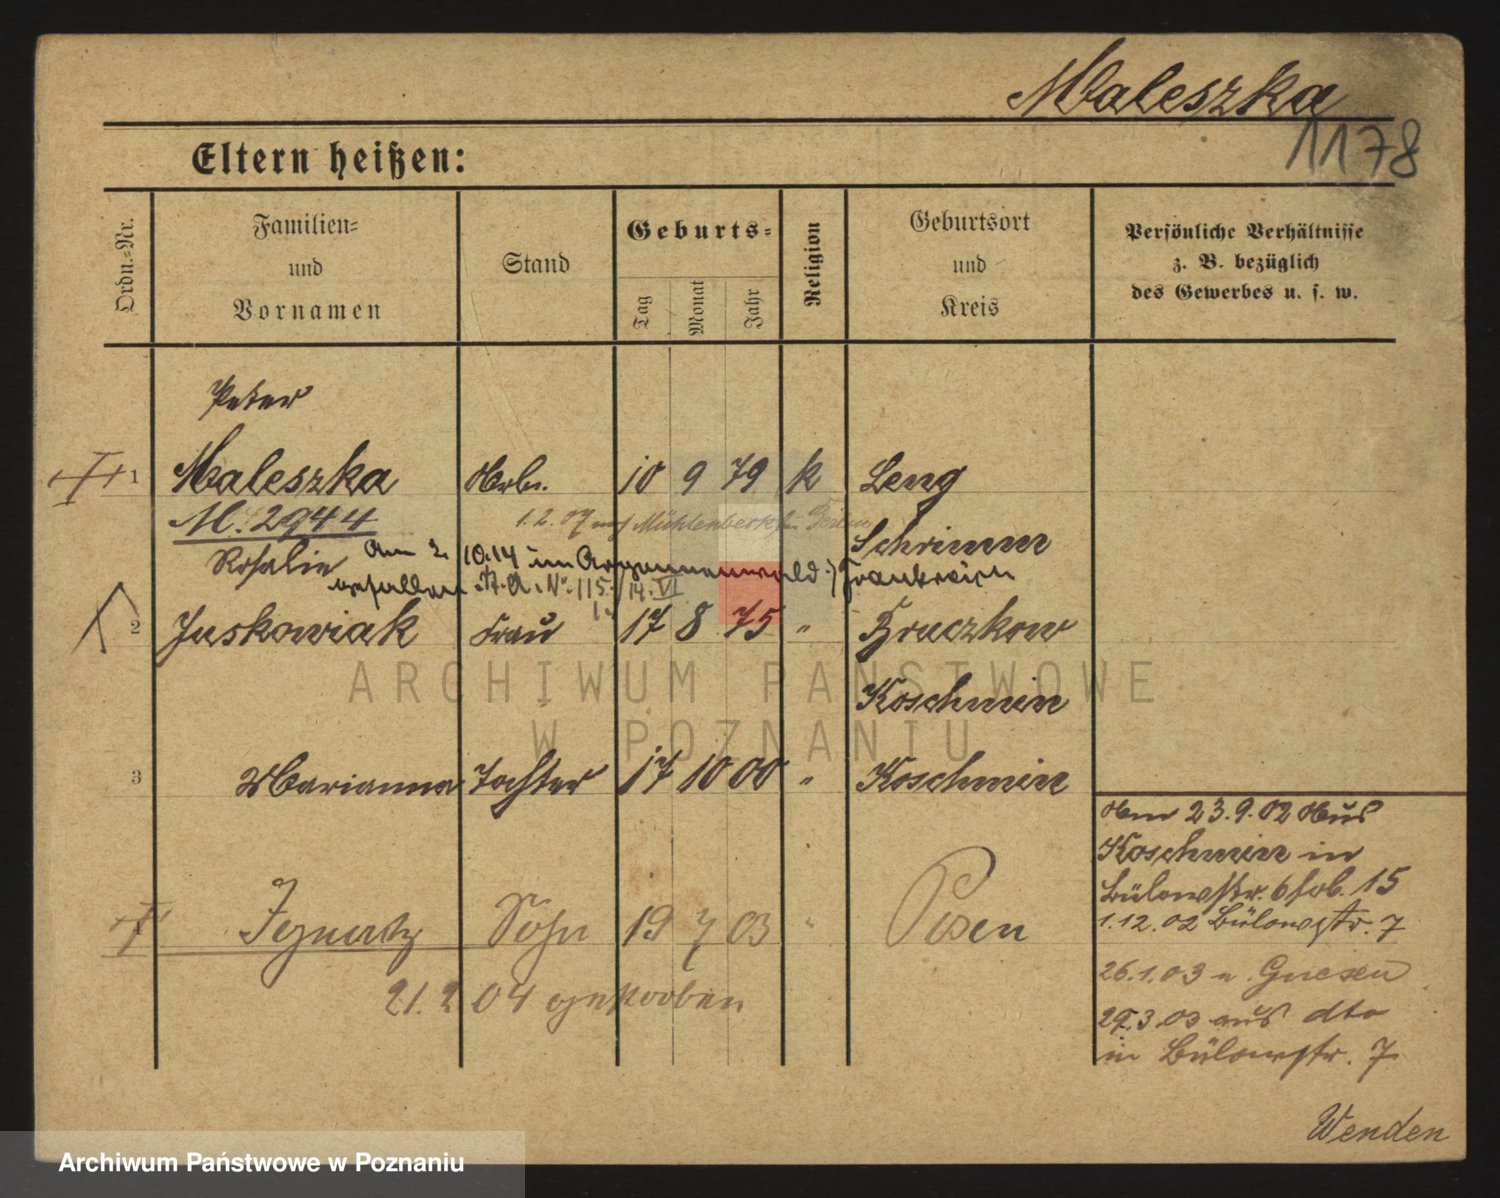 Maleszka
1178
Eltern heißen:
Ordn.-Nr.
Familien-
und
Vornamen
Stand
Geburts-
Tag
Monat
Jahr
Religion
Geburtsort
und
Kreis
Persönliche Verhältnisse
z. B. bezüglich
des Gewerbes u. s. w.
Peter
1 Maleszka Arb. 10 9 79 k Leng
M. 2944 1.2.07 auf Mühlenberk
Schrimm
Rosalie am 2. 10.14 im Argonnenwald Frankreich
gefallen St. A. Nr. 115/14. VI
2 Juskowiak Frau 17 8 75 " Bruczkow
Koschmin
3 Marianna Tochter 17 10 00 " Koschmin
4 Ignatz Sohn 19 7 03 " Posen
21.2 04 gestorben
Am 23.9.02 Aus
Koschmin in
Bülowstr. 6 15
1.12.02 Bülowstr. 7
26.1.03 n. Gnesen
29.3.03 aus dto
in Bülowstr. 7
Wenden
ARCHIWUM PAŃSTWOWE
W POZNANIU
Archiwum Państwowe w Poznaniu